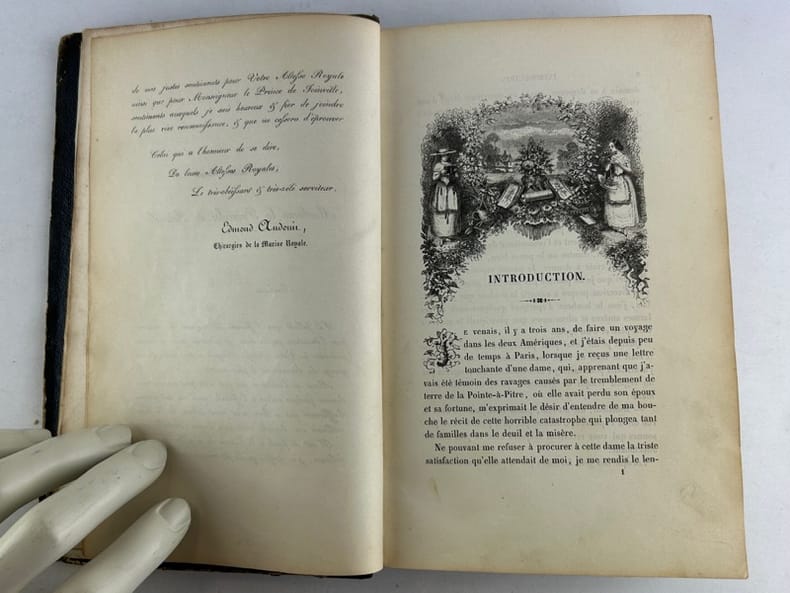 de nos justes sentiments pour Votre Altesse Royale
ainsi que pour Monseigneur le Prince de Joinville,
sentiments auxquels je suis heureux & fier de joindre
la plus vive reconnaissance, & que ne cessera d'éprouver
Celui qui a l'honneur de se dire,
De leurs Altesses Royales,
Le très-obéissant & très-zélé serviteur.
Edmond
Chirurgien de la Marine Royale.
INTRODUCTION.
JE venais, il y a trois ans, de faire un voyage
dans les deux Amériques, et j'étais depuis peu
de temps à Paris, lorsque je reçus une lettre
touchante d'une dame, qui, apprenant que j'a-
vais été témoin des ravages causés par le tremblement de
terre de la Pointe-à-Pitre, où elle avait perdu son époux
et sa fortune, m'exprimait le désir d'entendre de ma bou-
che le récit de cette horrible catastrophe qui plongea tant
de familles dans le deuil et la misère.
Ne pouvant me refuser à procurer à cette dame la triste
satisfaction qu'elle attendait de moi, je me rendis le len-
1